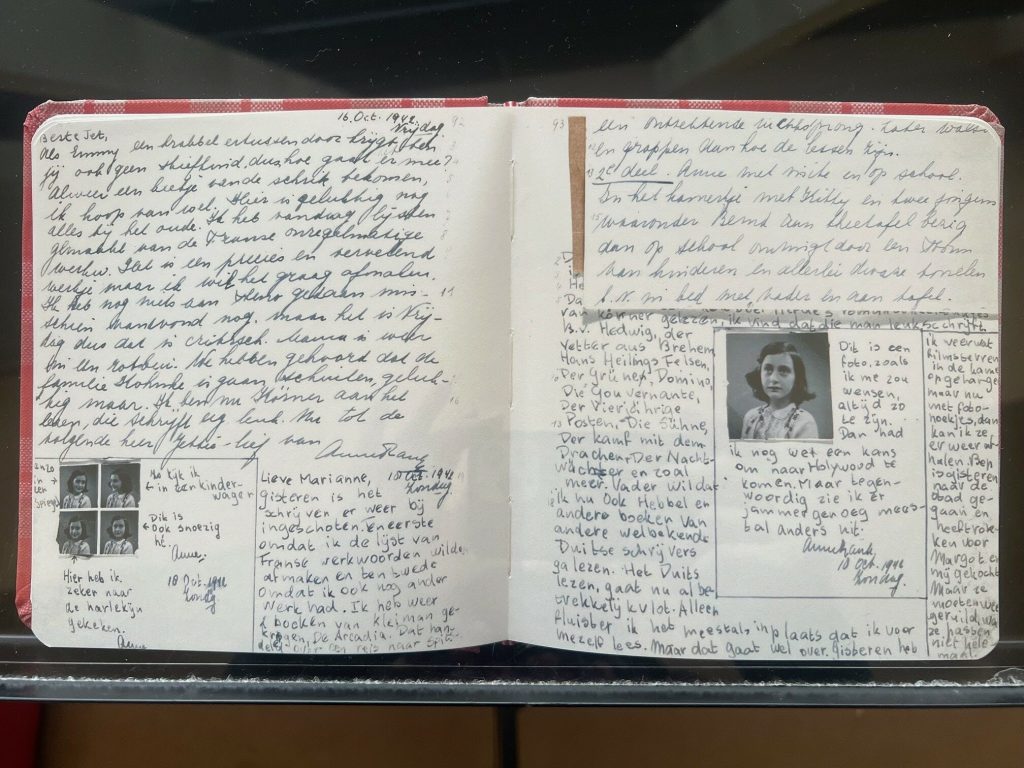 16. Oct. 1942
Vrijdag
92
Beste Jet,
Als Emmy een krabbel ertussen door krijgt, ben
jij ook geen stiefkind, dus hoe gaat er mee?
Alweer een beetje van de schrik bekomen,
ik hoop van wel. Hier is gelukkig nog
alles bij het oude. Ik heb vandaag lijsten
gemaakt van de Franse onregelmatige
werkw. Het is een precies en vervelend
werkje maar ik wil het graag afmaken.
Ik heb nog niets aan steno gedaan mis-
schien vanavond nog, maar het is Vrij-
dag dus dat is critisch. Mama is weer
in een rotbui. We hebben gehoord dat de
familie is gaan schuilen, geluk-
kig maar. Ik ben nu Körner aan het
lezen, die schrijft erg leuk. Nu tot de
volgende keer Jettie-lief van
Anne Frank
Enzo
in
een
spiegel
Nu kijk ik
in een kinder-
wagen
Dit is
ook snoezig
hè.
Anne.
Hier heb ik
zeker naar
de harlekijn
gekeken.
Anne
18 Oct. 1942
Zondag
Lieve Marianne,
18 Oct. 1942
Zondag
Gisteren is het
schrijven er weer bij
ingeschoten. Eneerste
omdat ik de lijst van
Franse werkwoorden wilde
afmaken en ten twede
omdat ik ook nog ander
werk had. Ik heb weer
2 boeken van kleiman ge-
kregen, De Arcadia. Dat han-
deld over een reis naar
93
een ontzettende luchtsprong. Later walsen
en grappen aan hoe de lessen zijn.
2e deel. Anne met visite en op school.
In het kamertje met Kitty en twee jongens
waaronder Bernd aan theetafel bezig
dan op school omringt door een stroom
van kinderen en allerlei dwaze tonelen
b.v. in bed met vader en aan tafel.
van körner gelezen, ik vind dat die man leuk schrijft.
B.v. Hedwig, der
Vetter aus Bremen,
Hans Heilings Felsen,
Der Grüner Domino,
Die Gouvernante,
Der Vierjährige
Posten, Die Sühne,
Der kampf mit dem
Drachen, Der Nacht-
wächter en zoal
meer. Vader wil dat
ik nu ook Hebbel en
andere boeken van
andere welbekende
Duitse schrijvers
ga lezen. Het Duits
lezen, gaat nu al be-
trekkelijk vlot. Alleen
fluister ik het meestal, inplaats dat ik voor
mezelf lees. Maar dat gaat wel over. Gisteren heb
Dit is een
foto, zoals
ik me zou
wensen,
altijd zo
te zijn.
Dan had
ik nog wel een kans
om naar Holywood te
komen. Maar tegen-
woordig zie ik er
jammer genoeg mees-
tal anders uit.
Anne Frank.
18 Oct. 1942
Zondag.
ik veer wat
filmsterren
in de kamer
opgehangen
maar nu
met foto-
hoekjes, dan
kan ik ze
er weer af
halen. Bep
is gisteren
naar de
stad ge-
gaan en
heeft rok-
ken voor
Margot en
mij gekocht
Maar ze
moeten weer
geruild, want
ze passen
niet hele-
maal.